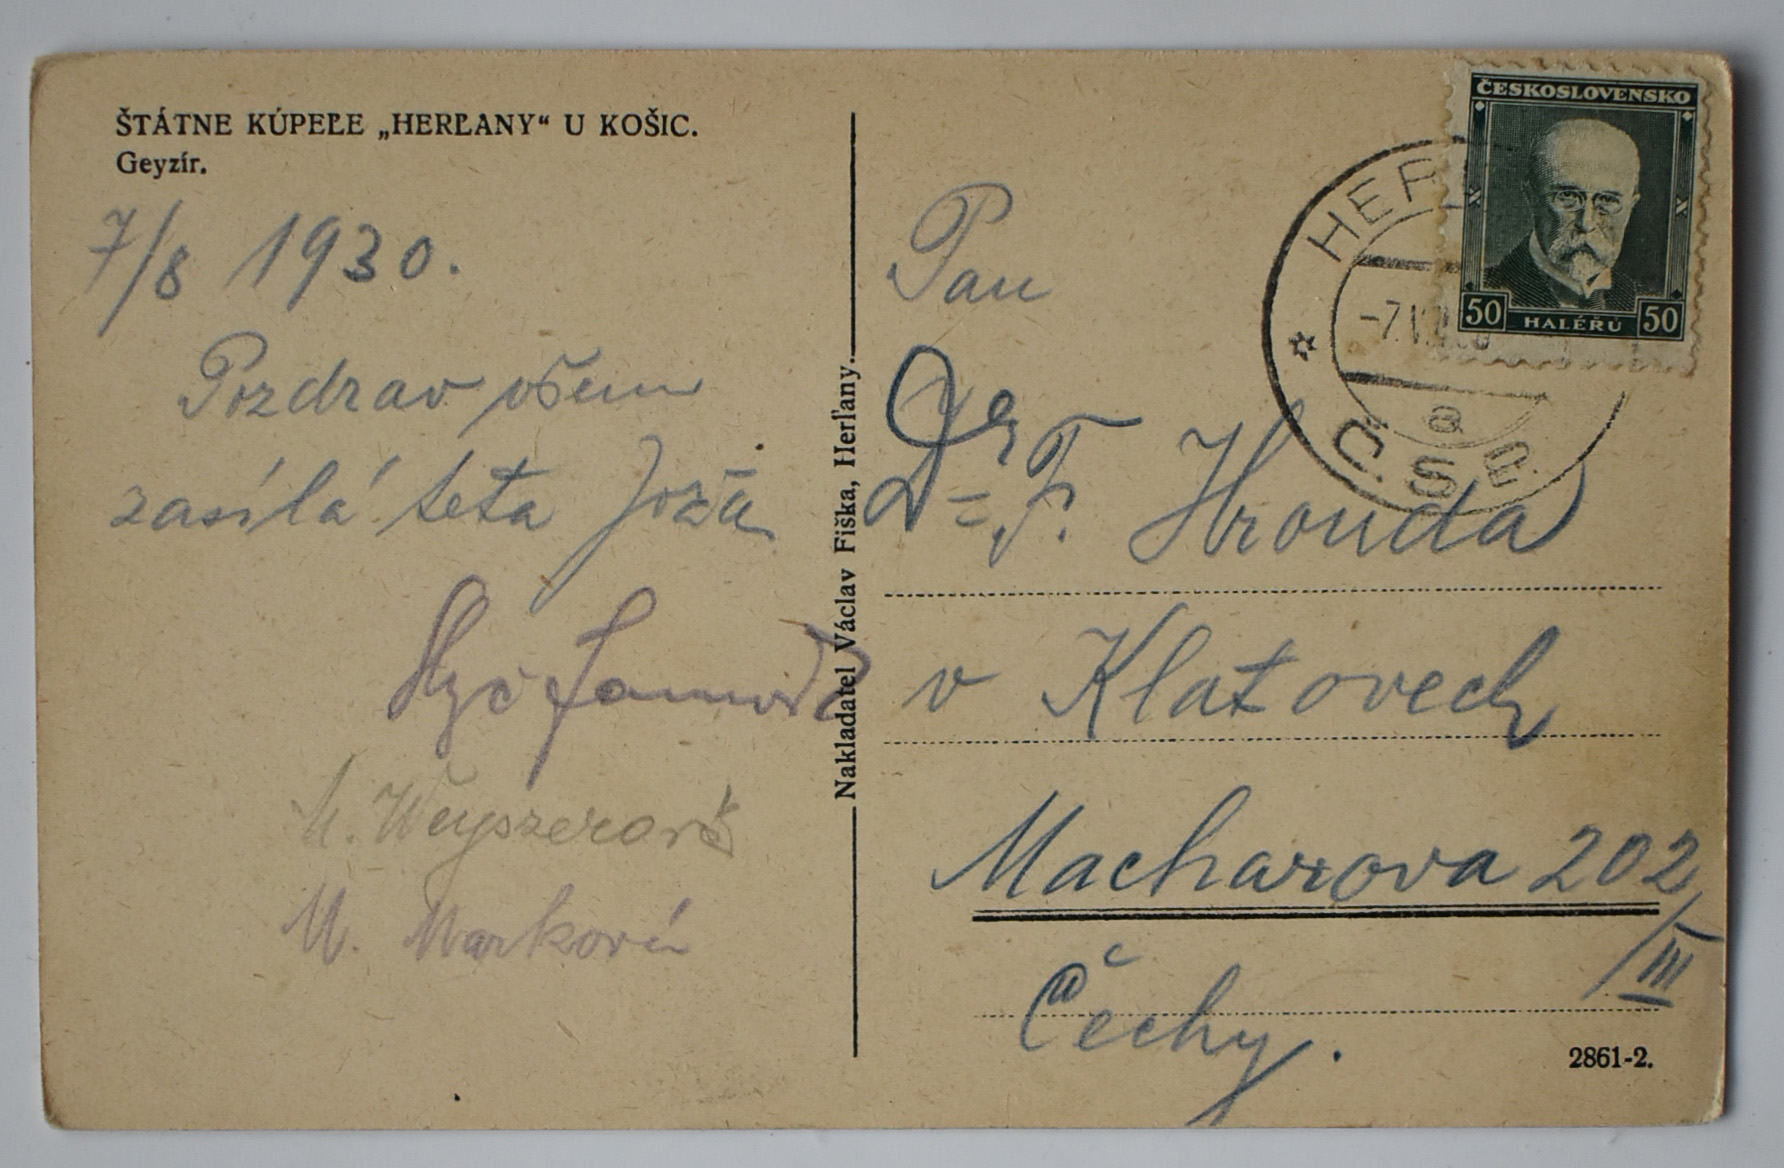 ŠTÁTNE KÚPEĽE „HERĽANY“ U KOŠIC.
Geyzír.
7/8 1930.
Pozdrav všem
zasílá teta Joža
M. Marková
Nakladatel Václav Fiška, Herľany.
ČESKOSLOVENSKO
50 HALÉŘŮ 50
HERĽ
-7.V
a
ČSR
Pan
Dr F. Hrouda
v Klatovech
Macharova 202
/III
Čechy.
2861-2.